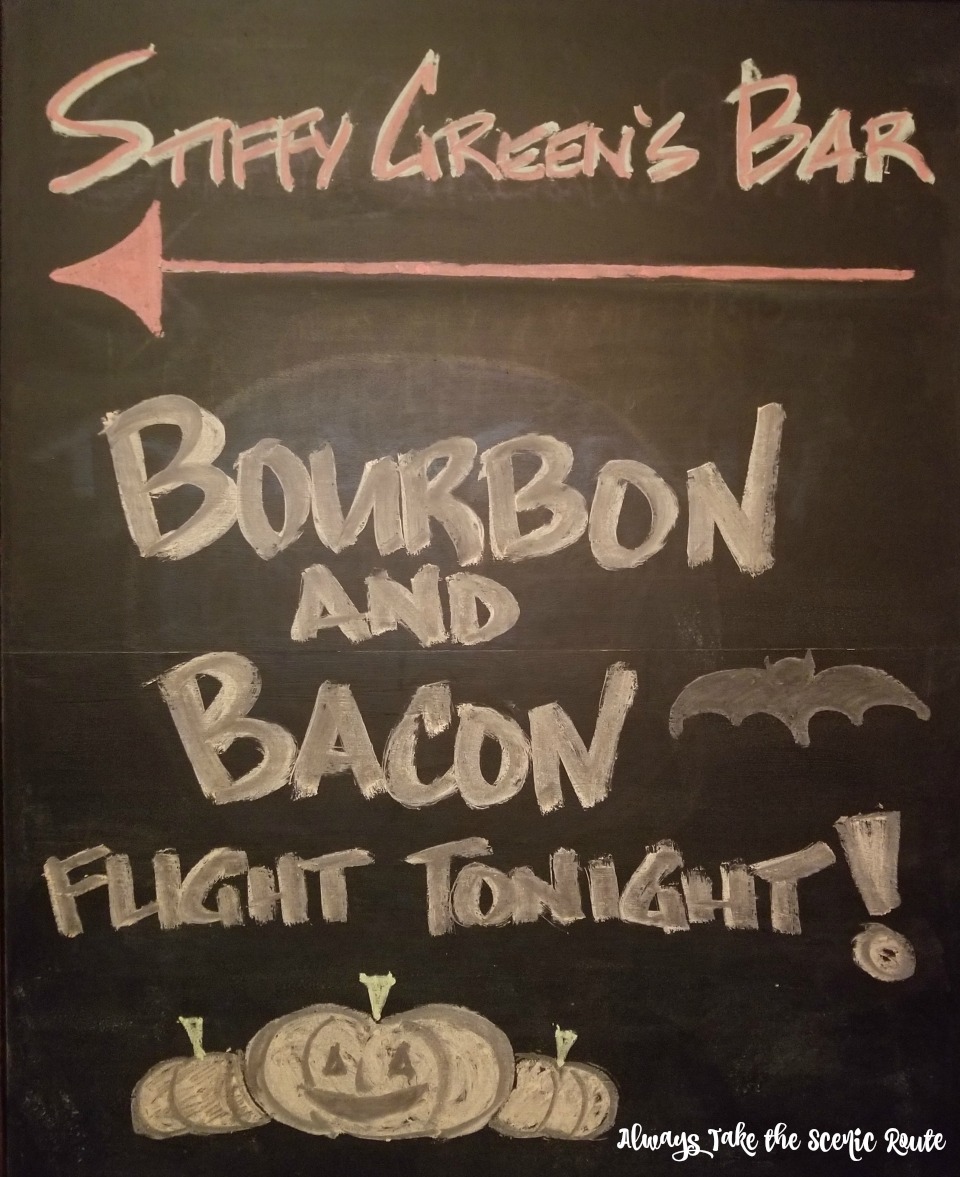 STIFFY GREEN'S BAR
BOURBON
AND
BACON
FLIGHT TONIGHT!
Always Take the Scenic Route